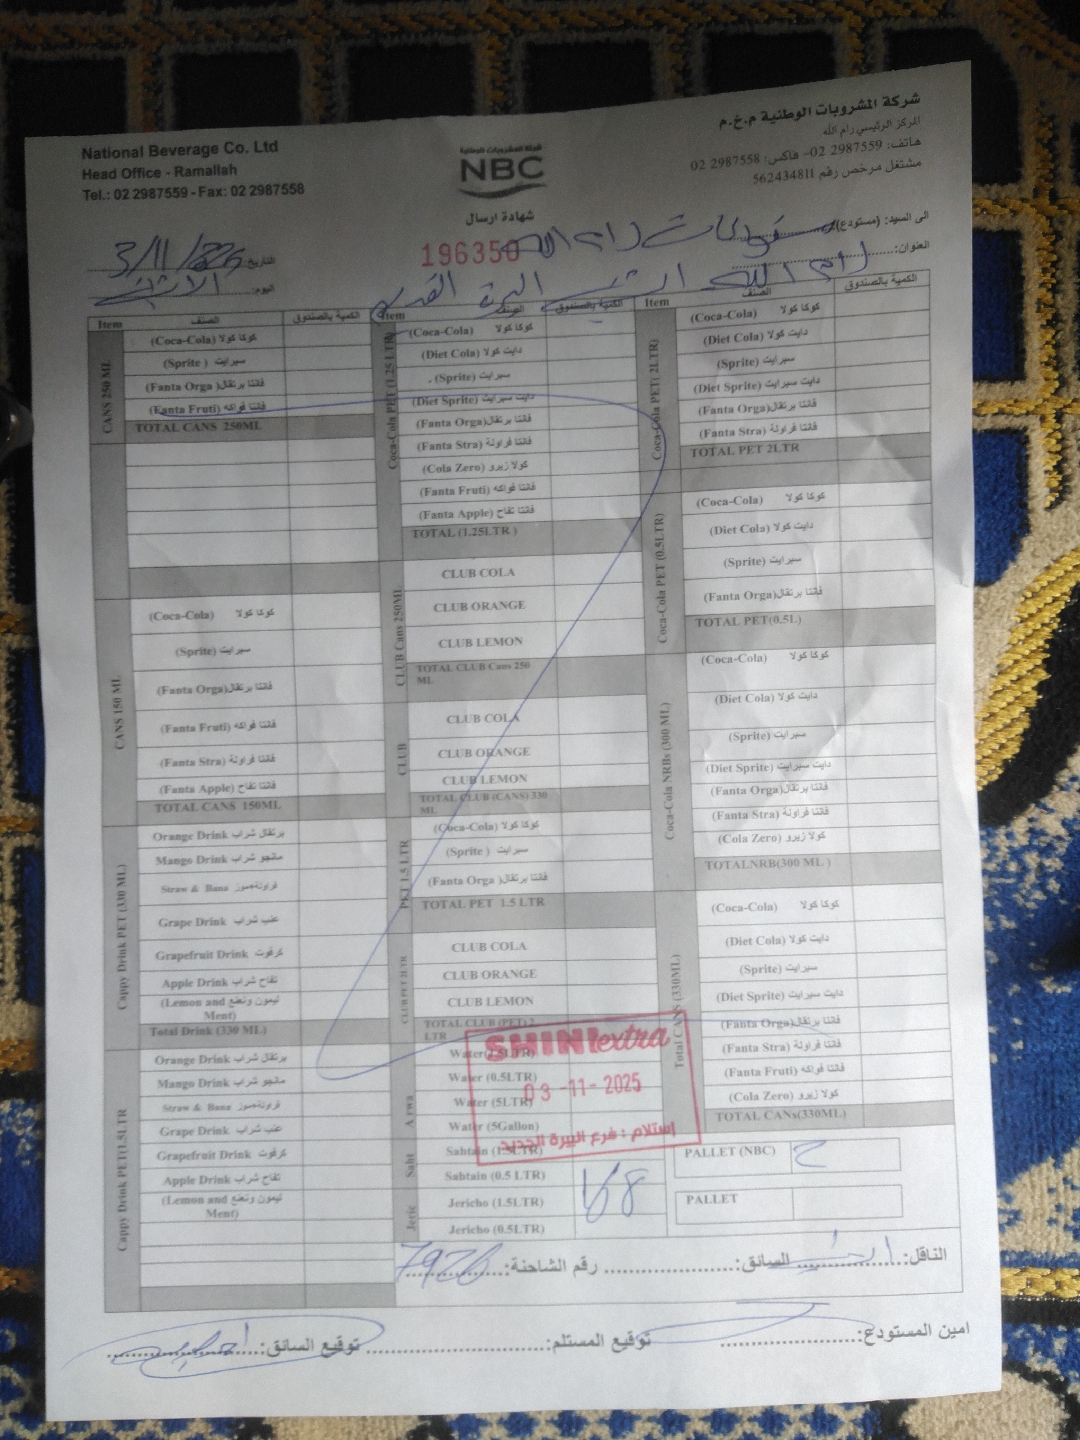 National Beverage Co. Ltd
Head Office - Ramallah
Tel.: 02 2987559 - Fax: 02 2987558
شركة المشروبات الوطنية
NBC
شركة المشروبات الوطنية م.خ.م
المركز الرئيسي رام الله
هاتف: 2987559 02- فاكس: 2987558 02
مشتغل مرخص رقم 562434811
شهادة ارسال
196350
الى السيد: (مستودع) رام الله
العنوان: رام الله
التاريخ: 3/11/
اليوم: الاثنين
Item الصنف الكمية بالصندوق
CANS 250 ML
(Coca-Cola) كوكا كولا
(Sprite ) سبرايت
(Fanta Orga )فانتا برتقال
(Fanta Fruti) فانتا فواكه
TOTAL CANS 250ML
CANS 150 ML
(Coca-Cola) كوكا كولا
(Sprite) سبرايت
(Fanta Orga)فانتا برتقال
(Fanta Fruti) فانتا فواكه
(Fanta Stra) فانتا فراولة
(Fanta Apple) فانتا تفاح
TOTAL CANS 150ML
Cappy Drink PET (330 ML)
Orange Drink برتقال شراب
Mango Drink مانجو شراب
Straw & Bana فراولةموز
Grape Drink عنب شراب
Grapefruit Drink كرفوت
Apple Drink تفاح شراب
(Lemon and ليمون ونعنع
Ment)
Total Drink (330 ML)
Cappy Drink PET(1.5LTR
Orange Drink برتقال شراب
Mango Drink مانجو شراب
Straw & Bana فراولةموز
Grape Drink عنب شراب
Grapefruit Drink كرفوت
Apple Drink تفاح شراب
(Lemon and ليمون ونعنع
Ment)
Item الصنف الكمية بالصندوق
Coca-Cola PET (1.25 LTR)
(Coca-Cola) كوكا كولا
(Diet Cola) دايت كولا
(Sprite) سبرايت
(Diet Sprite) دايت سبرايت
(Fanta Orga)فانتا برتقال
(Fanta Stra) فانتا فراولة
(Cola Zero) كولا زيرو
(Fanta Fruti) فانتا فواكه
(Fanta Apple) فانتا تفاح
TOTAL (1.25LTR )
CLUB Cans 250ML
CLUB COLA
CLUB ORANGE
CLUB LEMON
TOTAL CLUB Cans 250
ML
CLUB
CLUB COLA
CLUB ORANGE
CLUB LEMON
TOTAL CLUB (CANS) 330
ML
PET 1.5 LTR
(Coca-Cola) كوكا كولا
(Sprite ) سبرايت
(Fanta Orga )فانتا برتقال
TOTAL PET 1.5 LTR
CLUB PET 2LTR
CLUB COLA
CLUB ORANGE
CLUB LEMON
TOTAL CLUB (PET) 2
LTR
Arwa
Water(1.5LTR)
Water (0.5LTR)
Water (5LTR)
Water (5Gallon)
Saht
Sahtain (1.5LTR)
Sahtain (0.5 LTR)
Jeric
Jericho (1.5LTR)
Jericho (0.5LTR)
Item الصنف الكمية بالصندوق
Coca-Cola PET( 2LTR)
(Coca-Cola) كوكا كولا
(Diet Cola) دايت كولا
(Sprite) سبرايت
(Diet Sprite) دايت سبرايت
(Fanta Orga)فانتا برتقال
(Fanta Stra) فانتا فراولة
TOTAL PET 2LTR
Coca-Cola PET (0.5LTR)
(Coca-Cola) كوكا كولا
(Diet Cola) دايت كولا
(Sprite) سبرايت
(Fanta Orga)فانتا برتقال
TOTAL PET(0.5L)
Coca-Cola NRBs (300 ML)
(Coca-Cola) كوكا كولا
(Diet Cola) دايت كولا
(Sprite) سبرايت
(Diet Sprite) دايت سبرايت
(Fanta Orga)فانتا برتقال
(Fanta Stra) فانتا فراولة
(Cola Zero) كولا زيرو
TOTALNRB(300 ML )
Total CANS (330ML)
(Coca-Cola) كوكا كولا
(Diet Cola) دايت كولا
(Sprite) سبرايت
(Diet Sprite) دايت سبرايت
(Fanta Orga)فانتا برتقال
(Fanta Stra) فانتا فراولة
(Fanta Fruti) فانتا فواكه
(Cola Zero) كولا زيرو
TOTAL CANs(330ML)
SHINI extra
03-11-2025
إستلام : فرع البيرة الجديد
PALLET (NBC)
PALLET
الناقل: السائق: رقم الشاحنة: 7926
امين المستودع: توقيع المستلم: توقيع السائق: